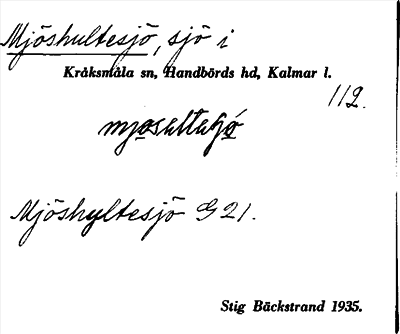 Mjöshultesjö, sjö i
Kråksmåla sn, Handbörds hd, Kalmar l.
112.
Mjöshyltesjö G 21.
Stig Bäckstrand 1935.